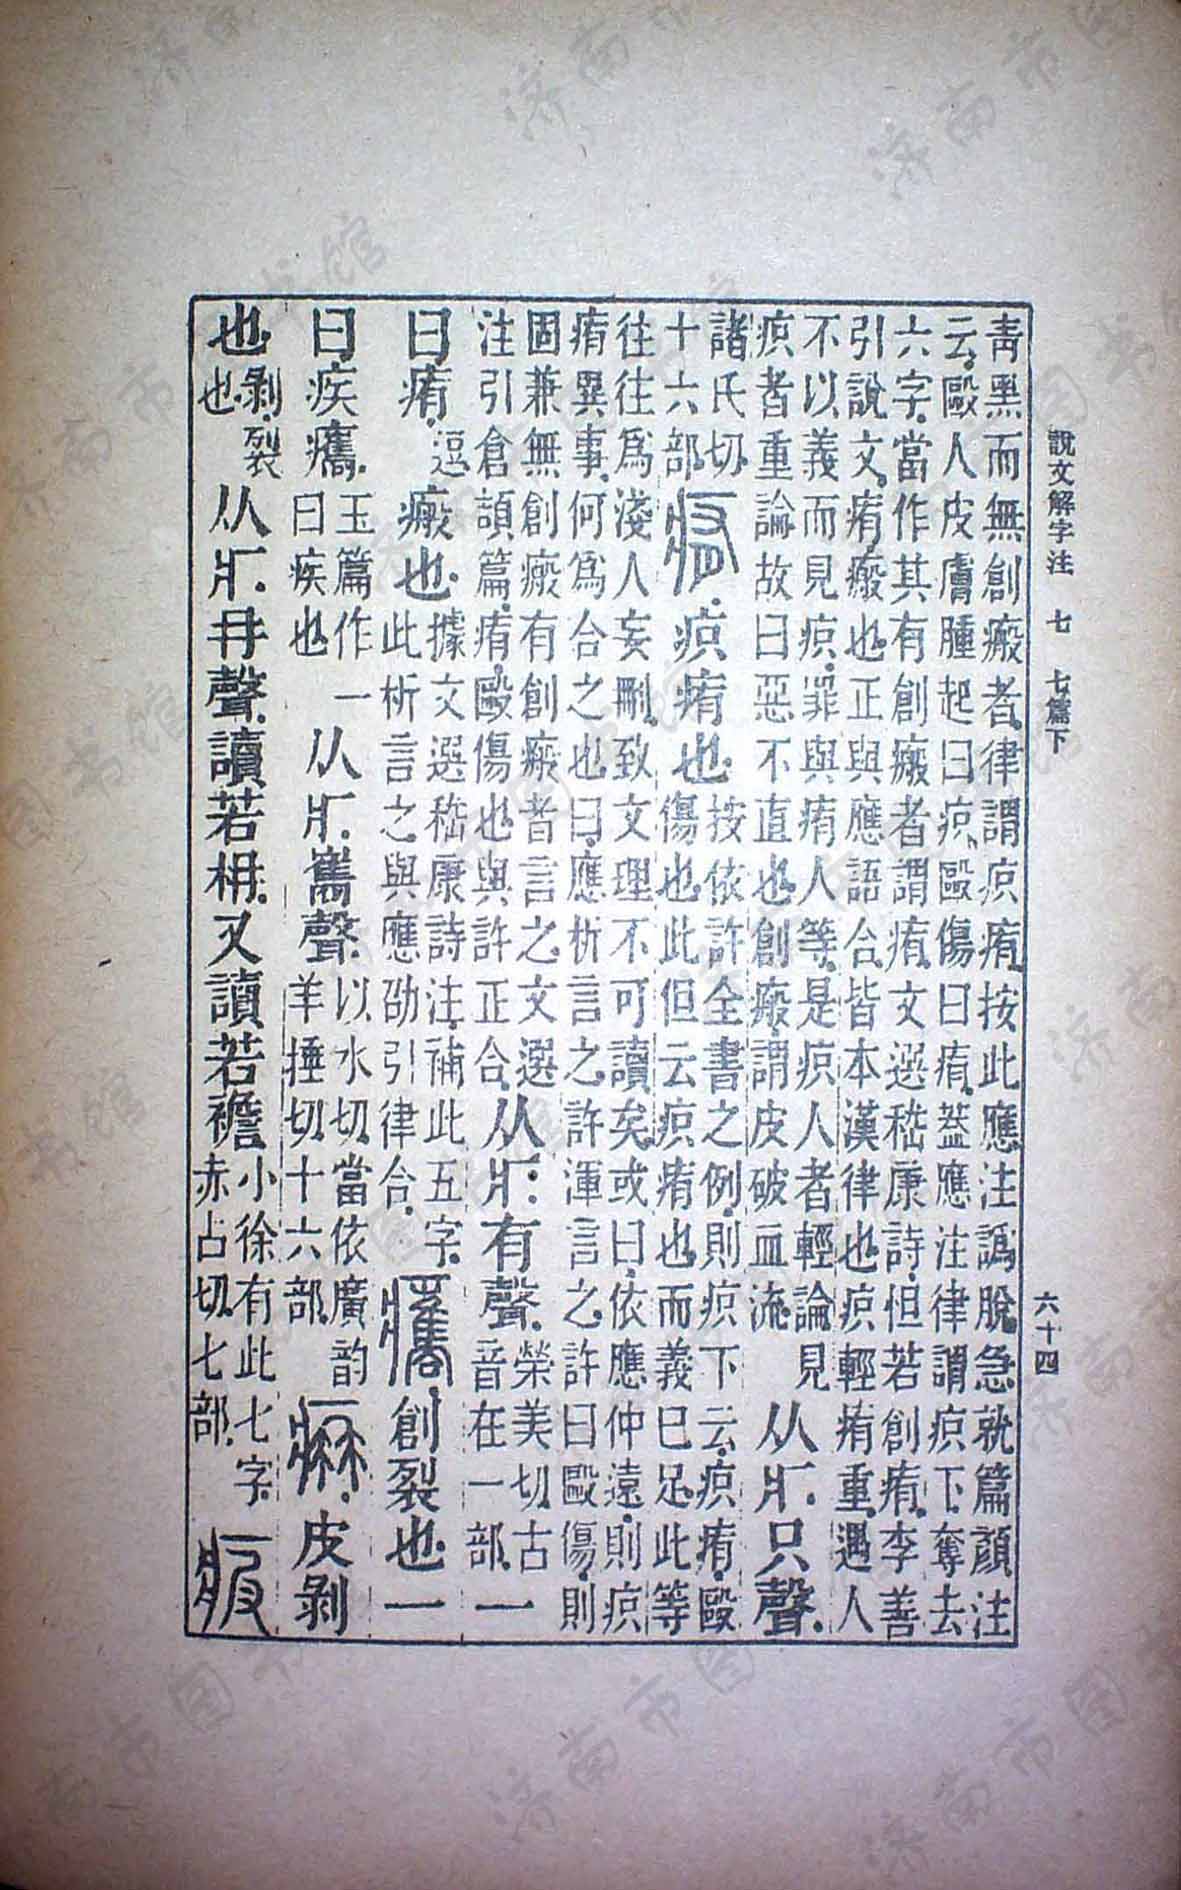 說文解字注 七 七篇下 六十四
青黑而無創瘢者律謂疻痏按此應注譌脫急就篇顏注
云毆人皮膚腫起曰疻毆傷曰痏葢應注律謂疻下奪去
六字當作其有創瘢者謂痏文選嵇康詩怛若創痏李善
引說文痏瘢也正與應語合皆本漢律也疻輕痏重遇人
不以義而見疻罪與痏人等是疻人者輕論見
疻者重論故曰惡不直也創瘢謂皮破血流
从疒只聲
諸氏切
十六部
痏疻痏也
按依許全書之例則疻下云疻痏毆
傷也此但云疻痏也而義巳足此等
往往爲淺人妄刪致文理不可讀矣或曰依應仲遠則疻
痏異事何爲合之也曰應析言之許渾言之許曰毆傷則
固兼無創瘢有創瘢者言之文選
注引倉頡篇痏毆傷也與許正合
从疒有聲
榮美切古
音在一部
一
曰痏
逗
瘢也
據文選嵇康詩注補此五字
此析言之與應劭引律合
創裂也一
曰疾
玉篇作一
曰疾也
从疒巂聲
以水切當依廣韵
羊捶切十六部
皮剝
也
剝裂
也
从疒冄聲讀若枏又讀若襜
小徐有此七字
赤占切七部
济南市图书馆